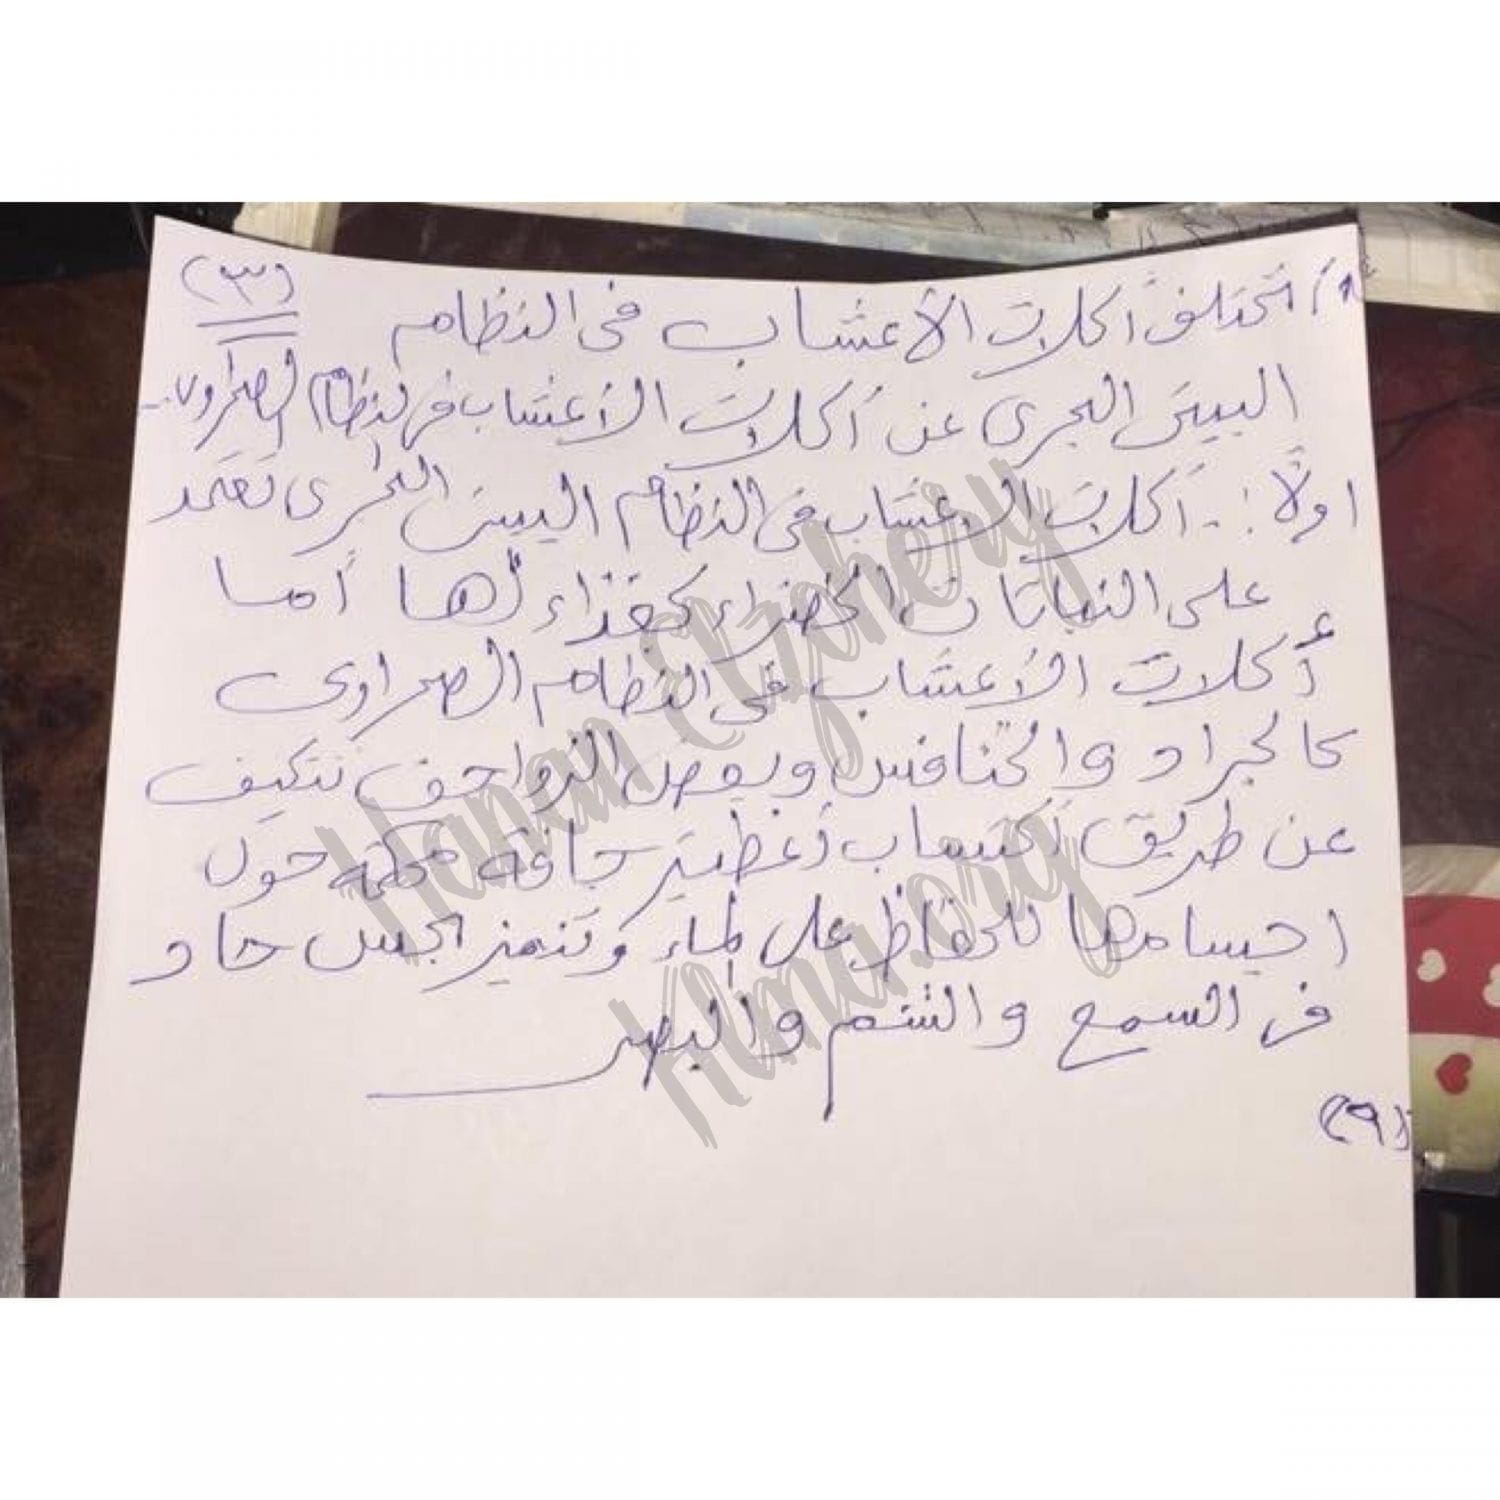 (٣)
تختلف أكلات الأعشاب فى النظام
البيئى البحرى عن أكلات الأعشاب فى النظام الصحراوى
اولاً :- أكلات الاعشاب فى النظام البيئى البحرى تعتمد
على النباتات الخضراء كغذاء لها أما
أكلات الأعشاب فى النظام الصحراوى
كالجراد والخنافس وبعض الزواحف تتكيف
عن طريق اكتساب أغطية جافة محكمة حول
اجسامها للحفاظ على الماء وتتميز بحس حاد
فى السمع والشم والبصر
(٩)
Hanan Elzohery
Klma.org